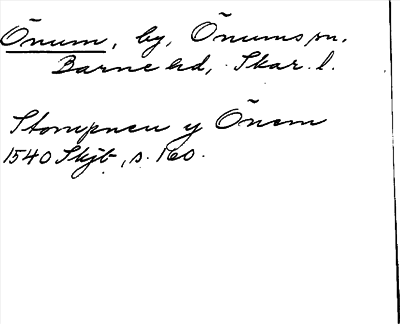 Õnum, by, Õnums sn.
Barne hd, Skar. l.
Stompneu y Õnem
1540 Skjb, s. 160.